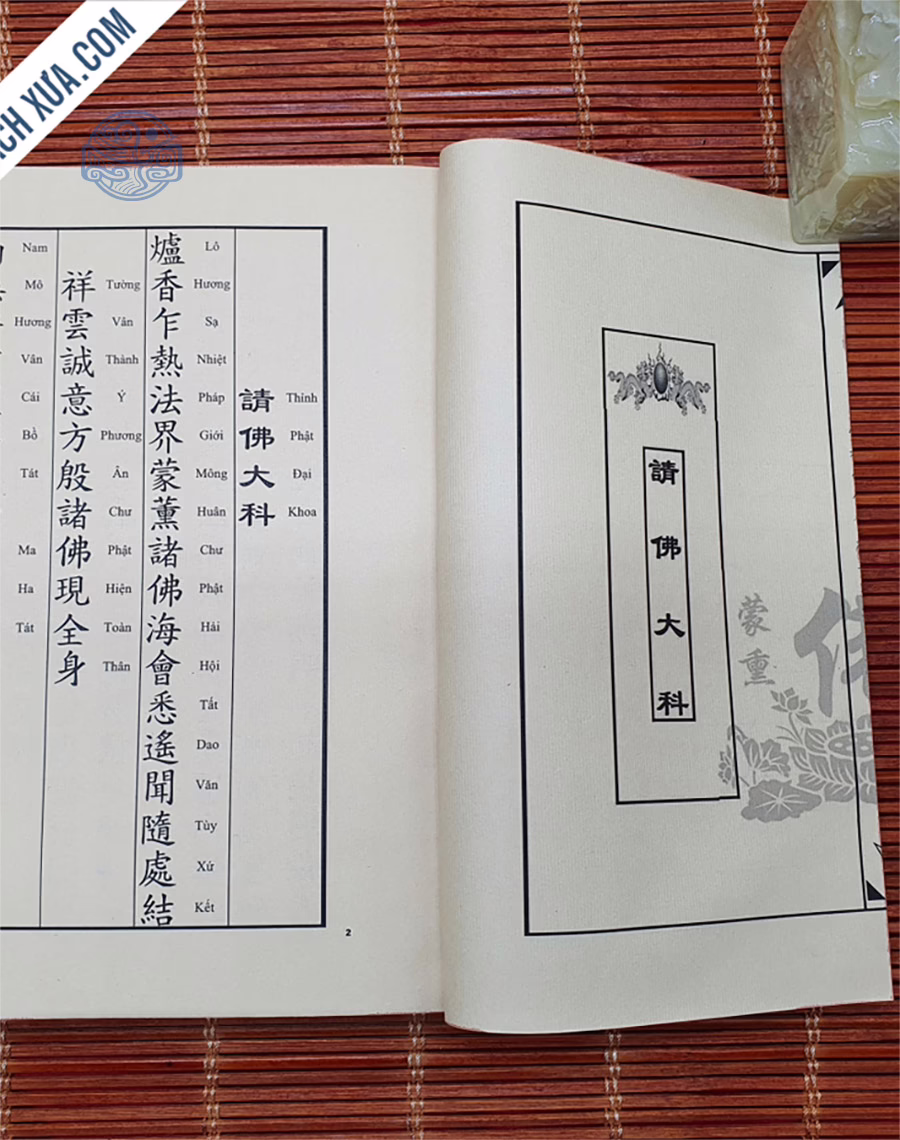 CH XƯA.COM
請佛大科
蒙熏
請佛大科
Thỉnh Phật Đại Khoa
爐香乍熱法界蒙薰諸佛海會悉遙聞隨處結
Lô Hương Sạ Nhiệt Pháp Giới Mông Huân Chư Phật Hải Hội Tất Dao Văn Tùy Xứ Kết
祥雲誠意方殷諸佛現全身
Tường Vân Thành Ý Phương Ân Chư Phật Hiện Toàn Thân
Nam Mô Hương Vân Cái Bồ Tát Ma Ha Tát
2